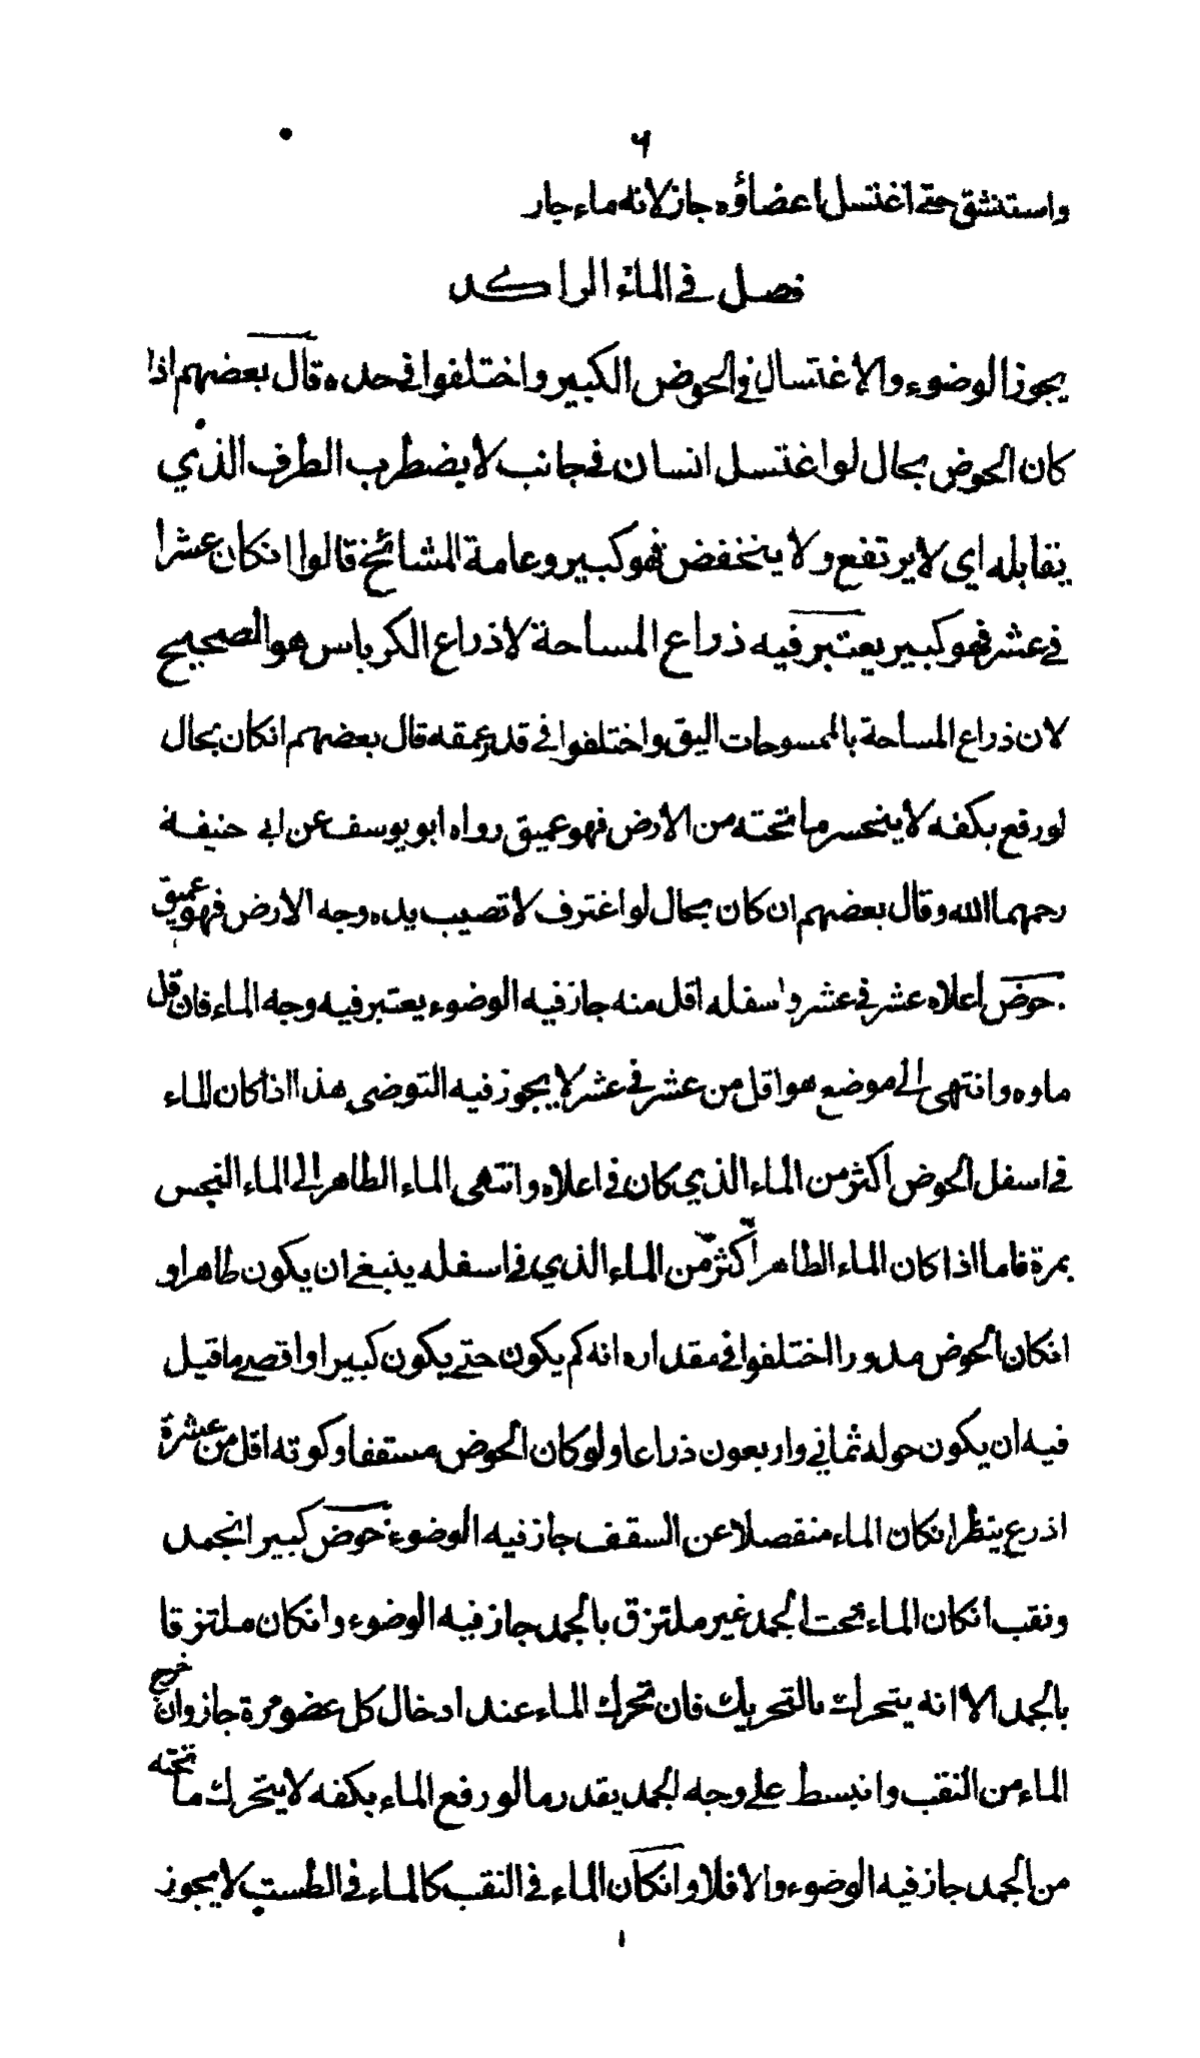 ٦
واستنشق حتے اغتسل اعضاؤه جاز لانه ماء جار
فصل في الماء الراكد
يجوز الوضوء والاغتسال في الحوض الكبير واختلفوا في حده قال بعضهم اذا
كان الحوض بحال لو اغتسل انسان في جانب لا يضطرب الطرف الذي
يقابله اي لا يرتفع ولا ينخفض فهو كبير وعامة المشائخ قالوا انكان عشرا
في عشر فهو كبير يعتبر فيه ذراع المساحة لا ذراع الكرباس هو الصحيح
لان ذراع المساحة بالممسوحات اليق واختلفوا في قدر عمقه قال بعضهم انكان بحال
لو رفع بكفه لا ينحسر ما تحته من الارض فهو عميق رواه ابو يوسف عن ابي حنيفة
رحمهما الله وقال بعضهم ان كان بحال لو اغترف لا تصيب يده وجه الارض فهو عميق
حوض اعلاه عشر في عشر واسفله اقل منه جاز فيه الوضوء يعتبر فيه وجه الماء فان قل
ماوه وانتهى الى موضع هو اقل من عشر في عشر لا يجوز فيه التوضي هذا اذا كان الماء
في اسفل الحوض اكثر من الماء الذي كان في اعلاه وانتهى الماء الطاهر الى الماء النجس
بمرة فاما اذا كان الماء الطاهر اكثر من الماء الذي في اسفله ينبغي ان يكون طاهرا و
انكان الحوض مدورا اختلفوا في مقداره انه كم يكون حتے يكون كبيرا واقصے ما قيل
فيه ان يكون حوله ثماني واربعون ذراعا ولو كان الحوض مسقفا وكوته اقل من عشرة
اذرع ينظر انكان الماء منفصلا عن السقف جاز فيه الوضوء حوض كبير انجمد
ونقب انكان الماء تحت الجمد غير ملتزق بالجمد جاز فيه الوضوء وانكان ملتزقا
بالجمد الا انه يتحرك بالتحريك فان تحرك الماء عند ادخال كل عضو مرة جاز وان خرج
الماء من النقب وانبسط على وجه الجمد بقدر ما لو رفع الماء بكفه لا يتحرك ما تحته
من الجمد جاز فيه الوضوء والا فلا وانكان الماء في النقب كالماء في الطست لا يجوز